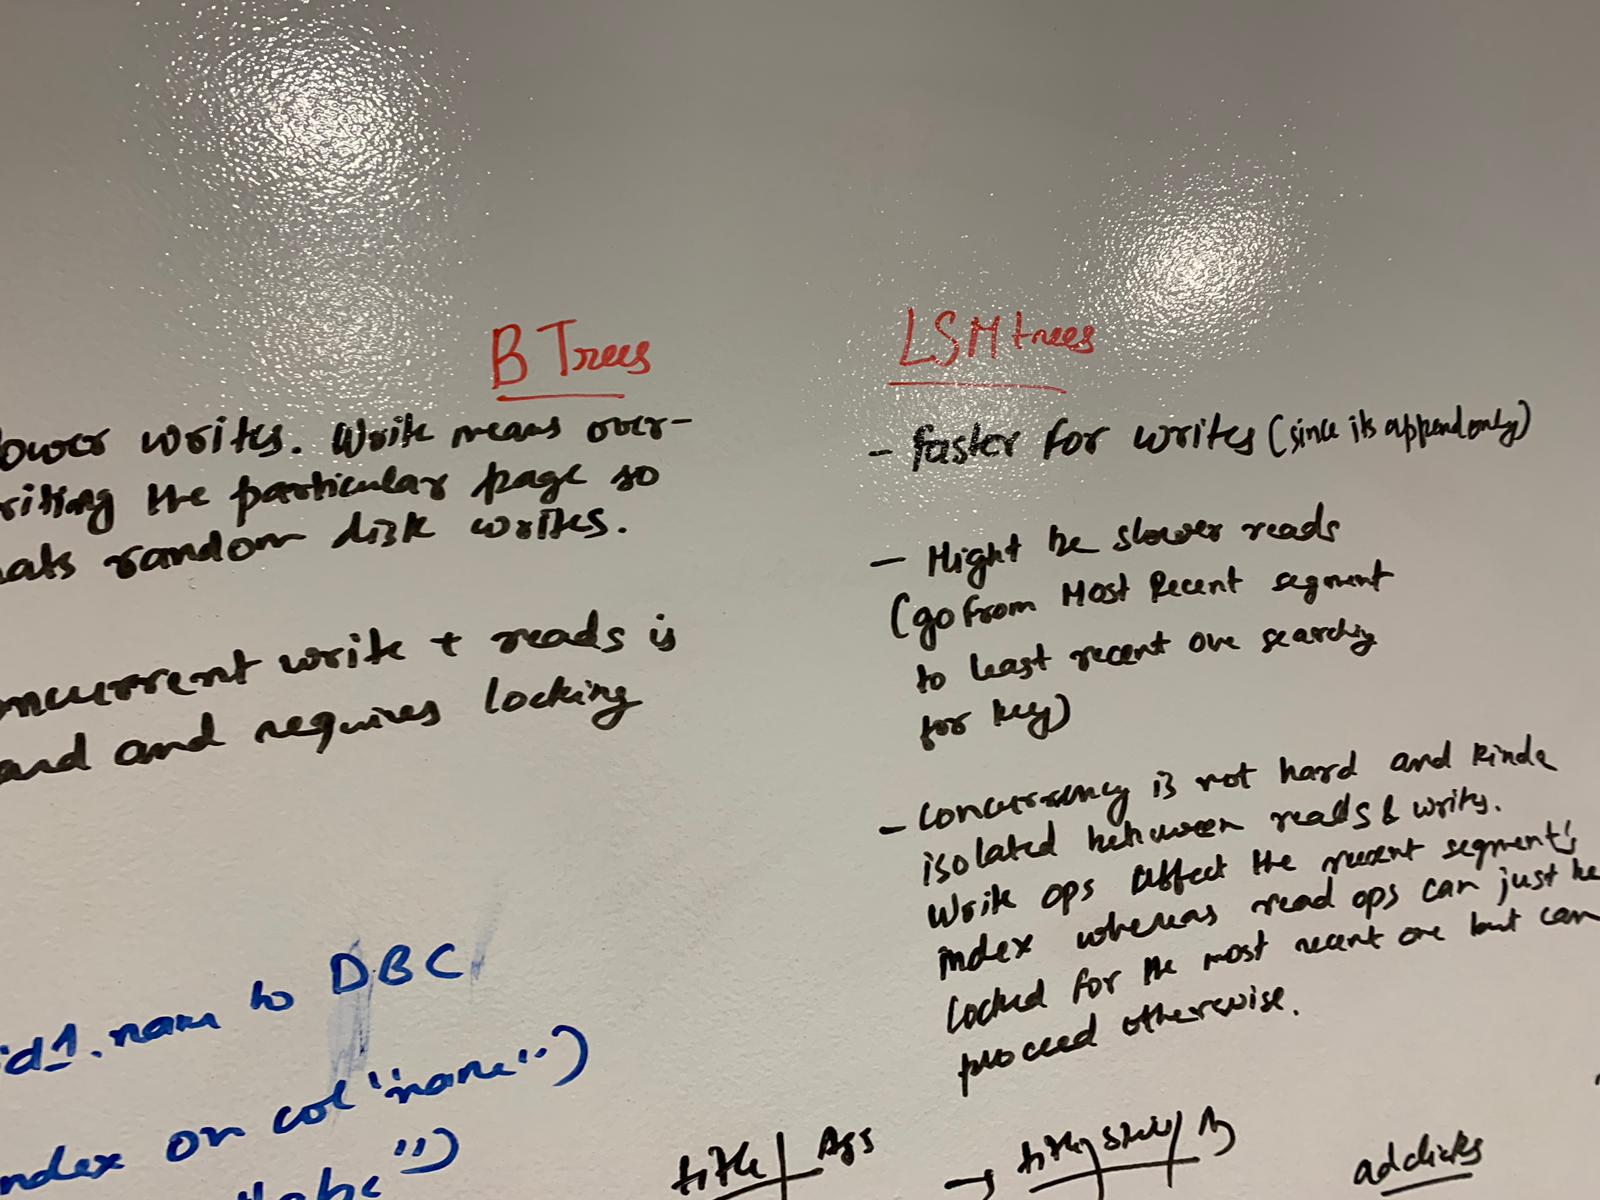 B Trees
lower writes. Write means over-
riting the particular page so
hats random disk writes.
oncurrent write + reads is
ard and requires locking
LSM trees
- faster for writes (since its append only)
- Might be slower reads
(go from Most Recent segment
to least recent one searching
for key)
- Concurrency is not hard and kinda
isolated between reads & writes.
Write ops affect the recent segment's
index whereas read ops can just be
locked for the most recent one but can
proceed otherwise.
id1.name to DBC
ndex on col "name")
")
title
→ title
adclicks